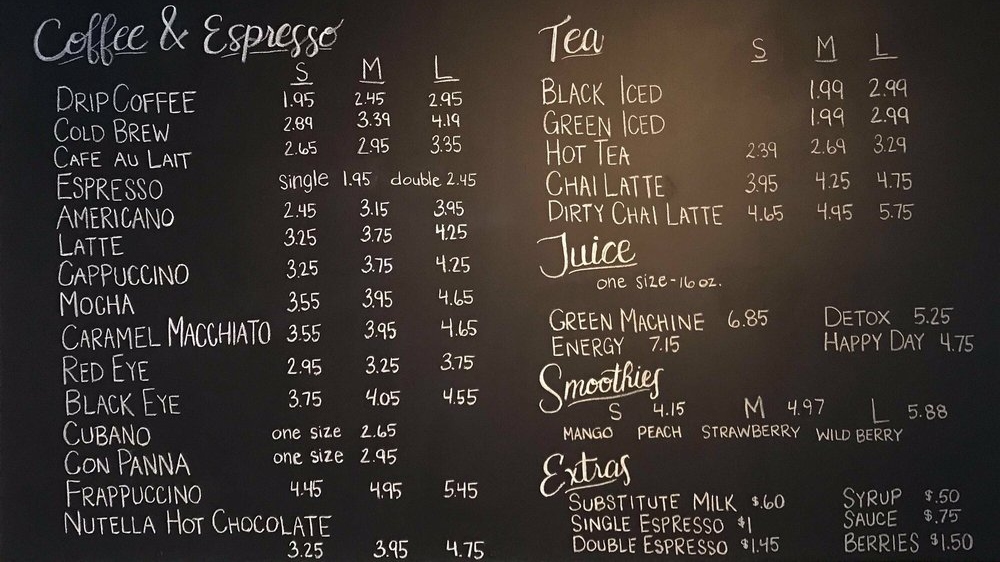 Coffee & Espresso
S M L
DRIP COFFEE 1.95 2.45 2.95
COLD BREW 2.89 3.39 4.19
CAFE AU LAIT 2.65 2.95 3.35
ESPRESSO single 1.95 double 2.45
AMERICANO 2.45 3.15 3.95
LATTE 3.25 3.75 4.25
CAPPUCCINO 3.25 3.75 4.25
MOCHA 3.55 3.95 4.65
CARAMEL MACCHIATO 3.55 3.95 4.65
RED EYE 2.95 3.25 3.75
BLACK EYE 3.75 4.05 4.55
CUBANO one size 2.65
CON PANNA one size 2.95
FRAPPUCCINO 4.45 4.95 5.45
NUTELLA HOT CHOCOLATE
3.25 3.95 4.75
Tea
S M L
BLACK ICED 1.99 2.99
GREEN ICED 1.99 2.99
HOT TEA 2.39 2.69 3.29
CHAI LATTE 3.95 4.25 4.75
DIRTY CHAI LATTE 4.65 4.95 5.75
Juice
one size-16 oz.
GREEN MACHINE 6.85 DETOX 5.25
ENERGY 7.15 HAPPY DAY 4.75
Smoothies
S 4.15 M 4.97 L 5.88
MANGO PEACH STRAWBERRY WILD BERRY
Extras
SUBSTITUTE MILK $.60 SYRUP $.50
SINGLE ESPRESSO $1 SAUCE $.75
DOUBLE ESPRESSO $1.45 BERRIES $1.50